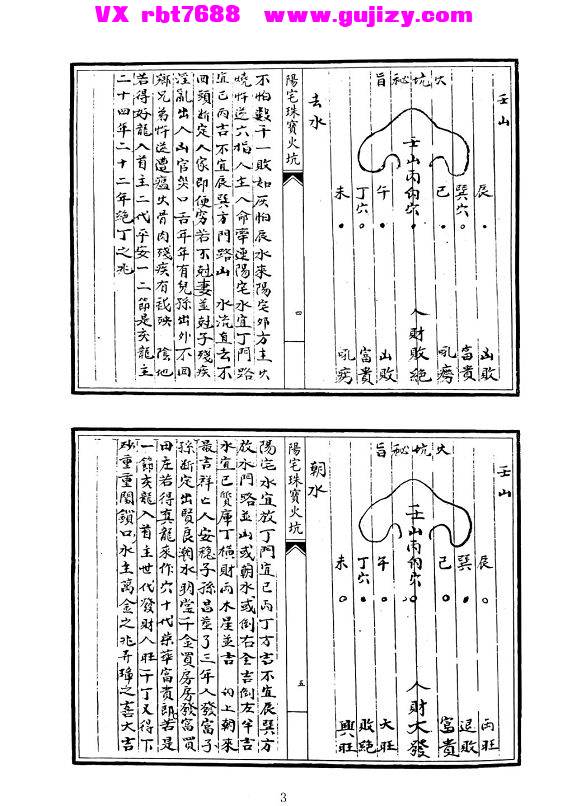 VX rbt7688  www.gujizy.com
壬山
火坑秘旨
壬山丙向穴
辰 凶敗
巽穴 富貴
巳 吼痨
人財敗絕
午 凶敗
丁穴 富貴
未 吼痨
去水
陽宅珠寶火坑
四
不怕數千一敗如灰怕辰水來陽宅外方主火
燒忤逆六指人主人命牽連陽宅水宜丁門路
宜巳丙吉不宜辰巽方門路凶 水流直去不
回頭斷定人家即便穷若不尅妻並尅子殘疾
淫亂出人凶官災口舌年年有兒孫出外不回
鄉兄弟忤逆遭瘟火骨肉殘疾有
若得好龍入首主二代平安一二節是亥龍主
二十四年二十二年絕丁之兆
壬山
火坑秘旨
壬山丙向穴
辰 丙旺
巽 退敗
巳 富貴
人財大發
午 大旺
丁穴 敗絕
未 興旺
朝水
陽宅珠寶火坑
五
陽宅水宜放丁門宜巳丙丁方吉不宜辰巽方
放水門路並凶或朝水或倒右全吉倒左半吉
水宜巳貿庫丁橫財丙木星並吉 向上朝來
最吉祥亡人安穩子孫昌塟了三年人發富子
孫斷定出賢良潮水明堂千金買房房發富買
田庄若得真龍來作穴十代榮華富貴郎若是
一節亥龍入首主世代發財人旺千丁又得下
砂重重關鎖口水主萬金之兆弄璋之喜大吉
3